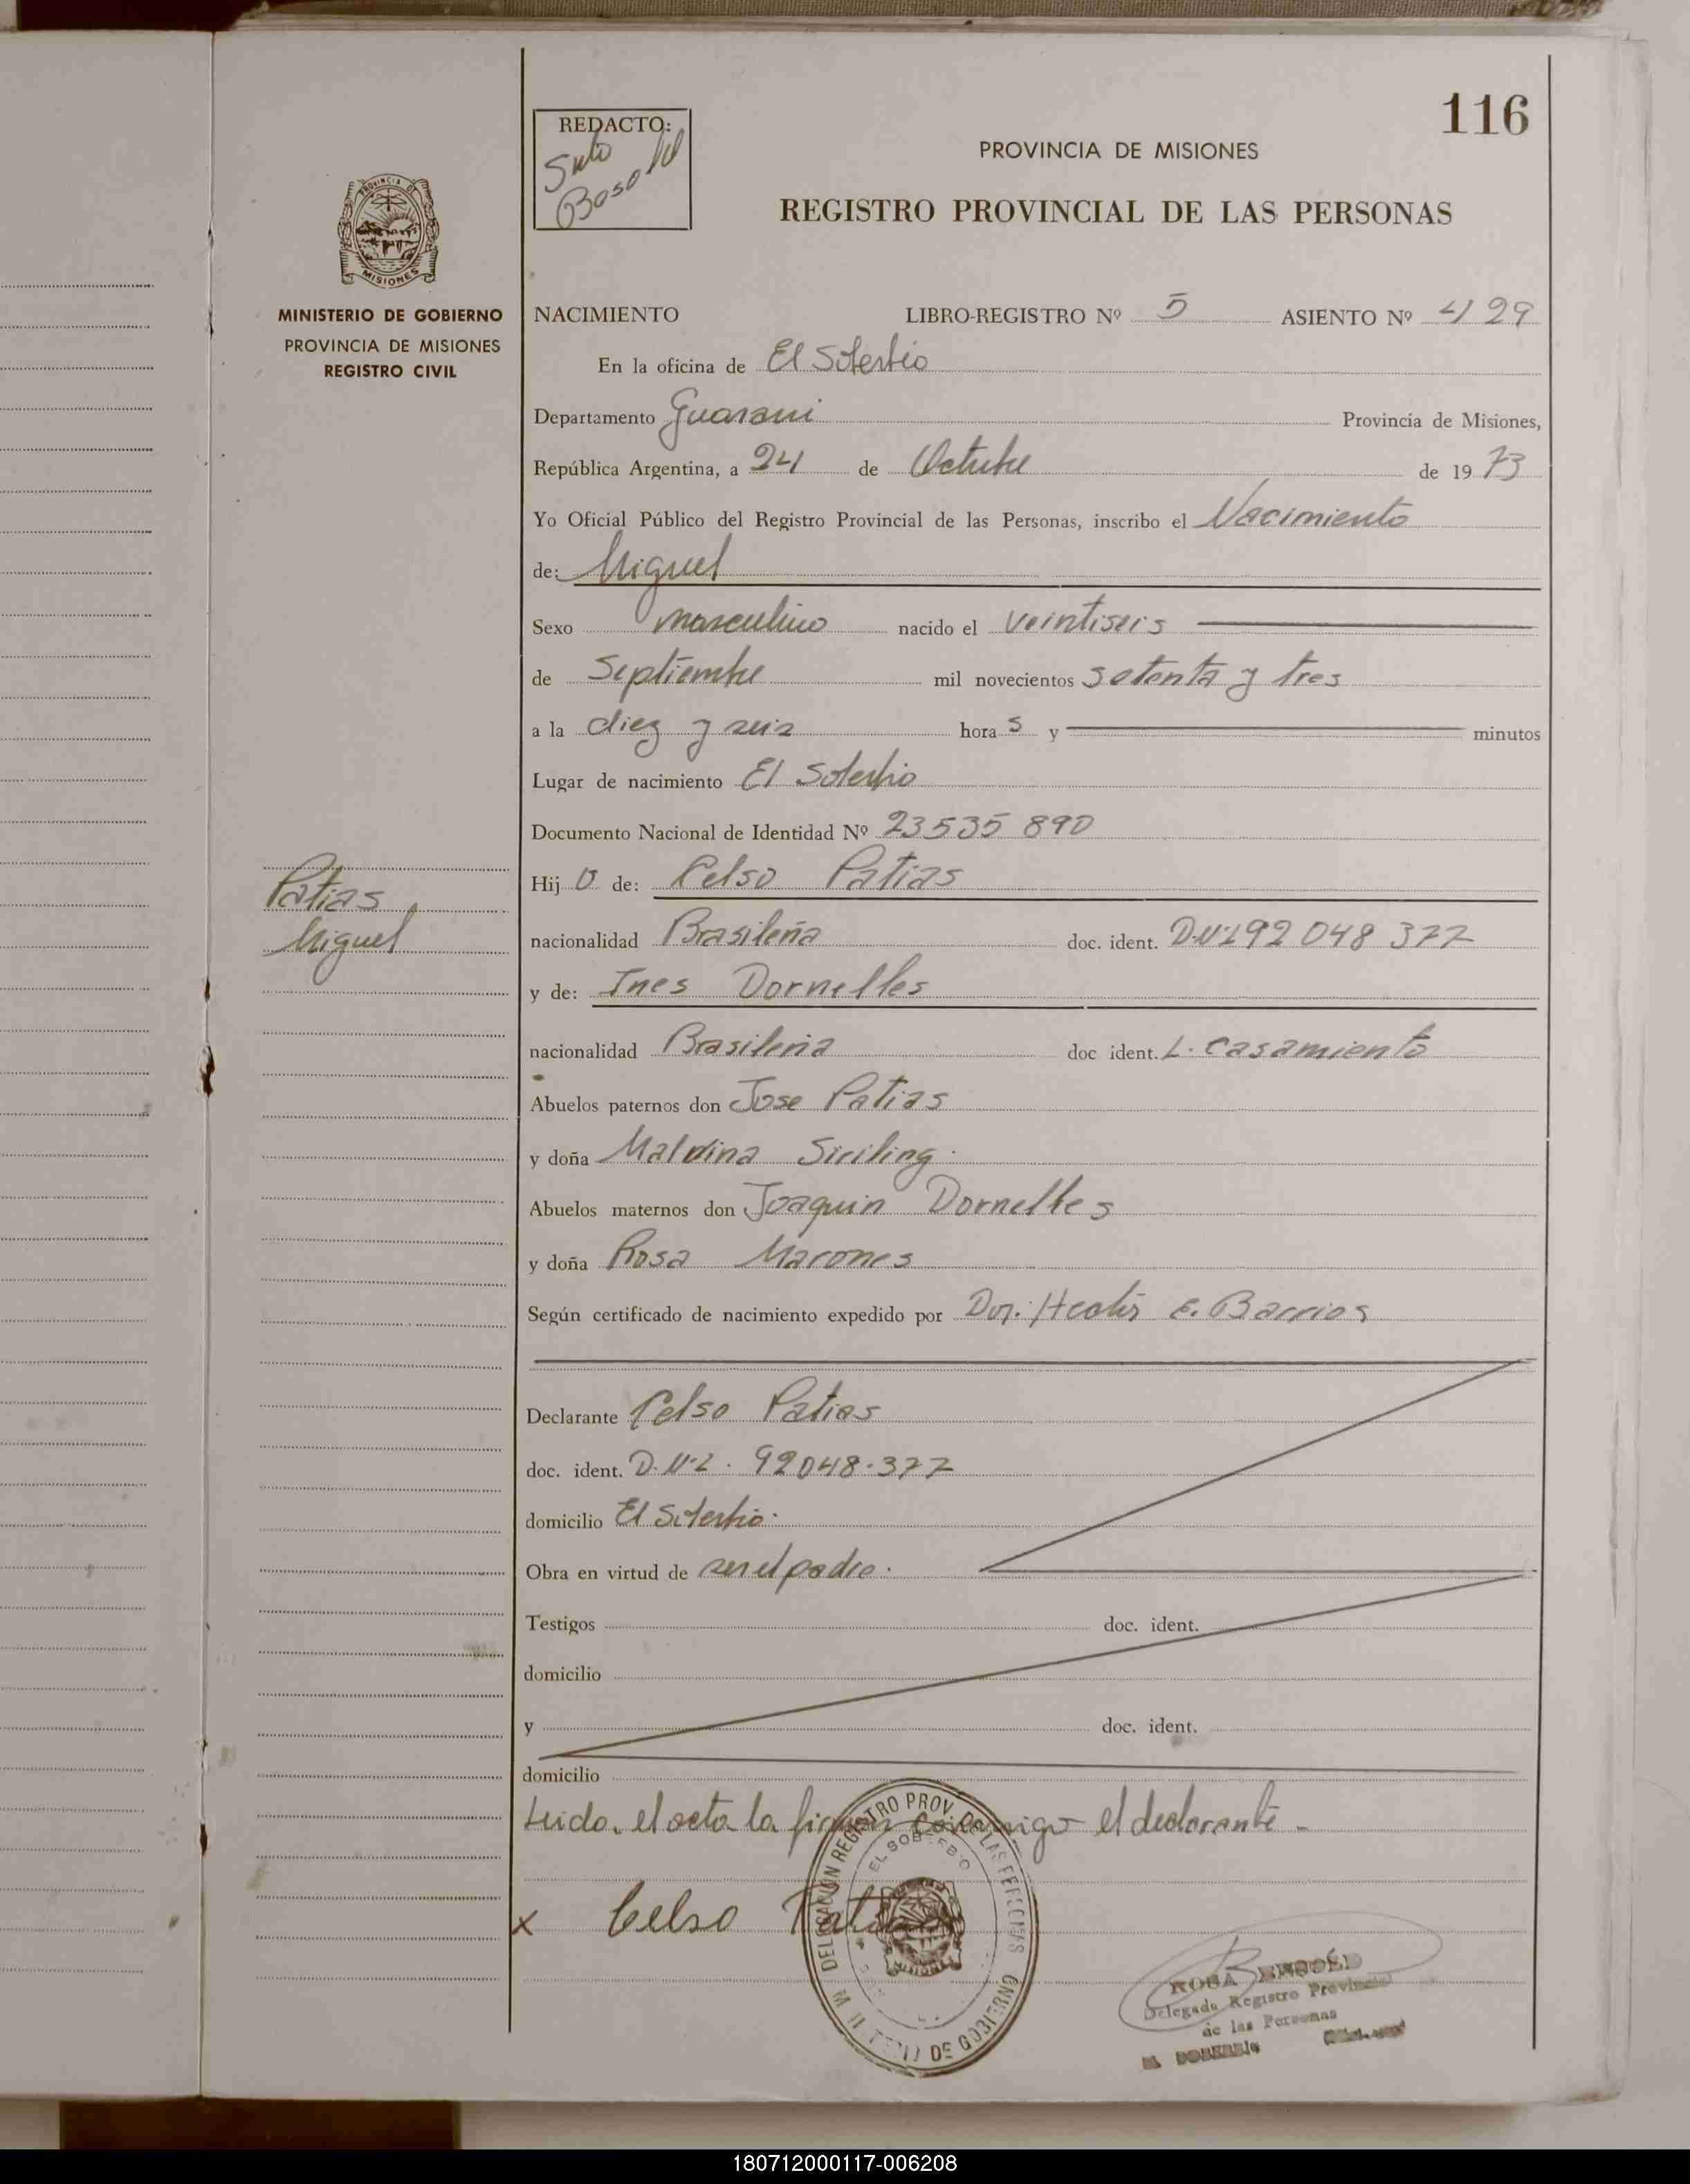 116
REDACTO:
PROVINCIA DE MISIONES
REGISTRO PROVINCIAL DE LAS PERSONAS
MINISTERIO DE GOBIERNO
PROVINCIA DE MISIONES
REGISTRO CIVIL
NACIMIENTO LIBRO-REGISTRO Nº 5 ASIENTO Nº 429
En la oficina de El Soberbio
Departamento Guarani Provincia de Misiones,
República Argentina, a 24 de Octubre de 1973
Yo Oficial Público del Registro Provincial de las Personas, inscribo el Nacimiento
de: Miguel
Sexo masculino nacido el veintiseis
de Septiembre mil novecientos setenta y tres
a la diez y seis hora s y minutos
Lugar de nacimiento El Soberbio
Documento Nacional de Identidad Nº 23535 890
Hij o de: Celso Patias
Patias
Miguel
nacionalidad Brasileña doc. ident. D.N.I 92 048 377
y de: Ines Dornelles
nacionalidad Brasileña doc ident. L. casamiento
Abuelos paternos don Jose Patias
y doña Malvina Siriling
Abuelos maternos don Joaquin Dornelles
y doña Rosa Marones
Según certificado de nacimiento expedido por E. Barrios
Declarante Celso Patias
doc. ident. D.N.I. 92048.377
domicilio El Soberbio.
Obra en virtud de ser el padre.
Testigos doc. ident.
domicilio
y doc. ident.
domicilio
Leida el acta la firman conmigo el declarante -
x Celso Patias
DELEGACION REGISTRO PROV. DE LAS PERSONAS
EL SOBERBIO
MISIONES
DE GOBIERNO
ROSA
Delegada Registro Provincial
de las Personas
EL SOBERBIO
180712000117-006208